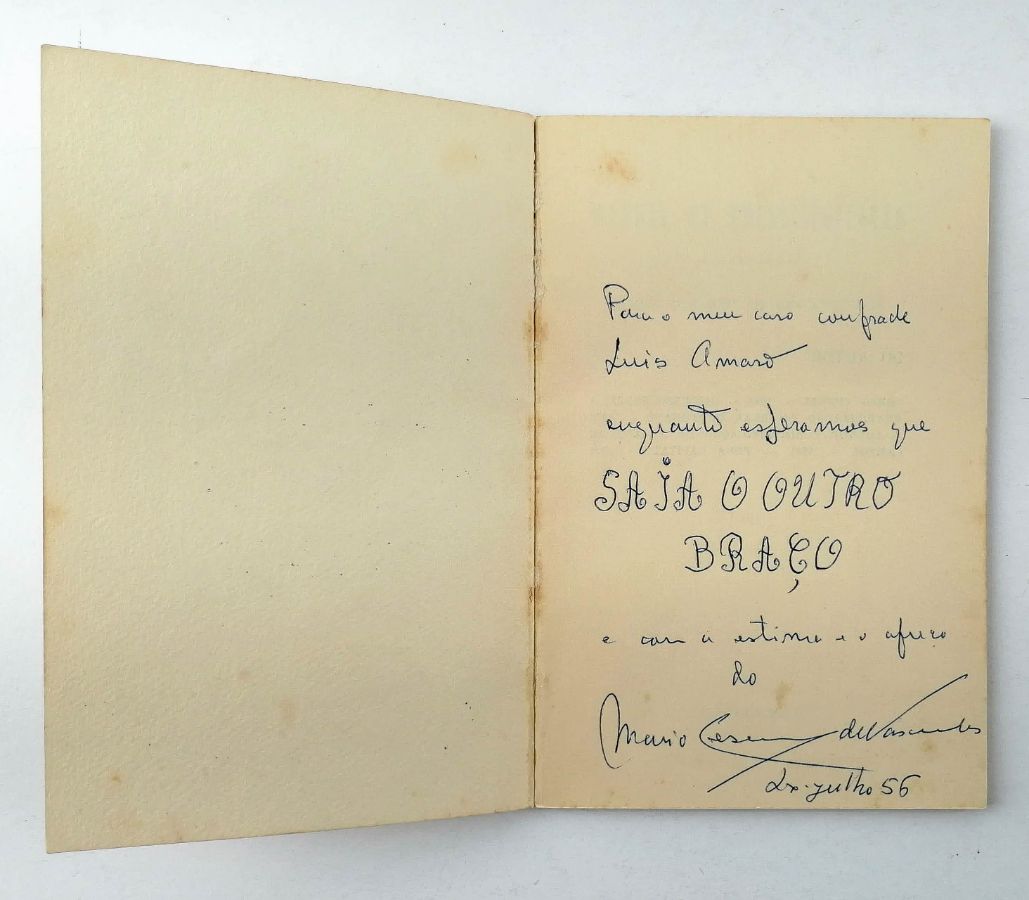 Para o meu caro confrade
Luis Amaro
enquanto esperamos que
SAIA O OUTRO
BRAÇO
e com a estima e o apreço
do
Mario Cesariny de Vasconcelos
Lx. julho 56